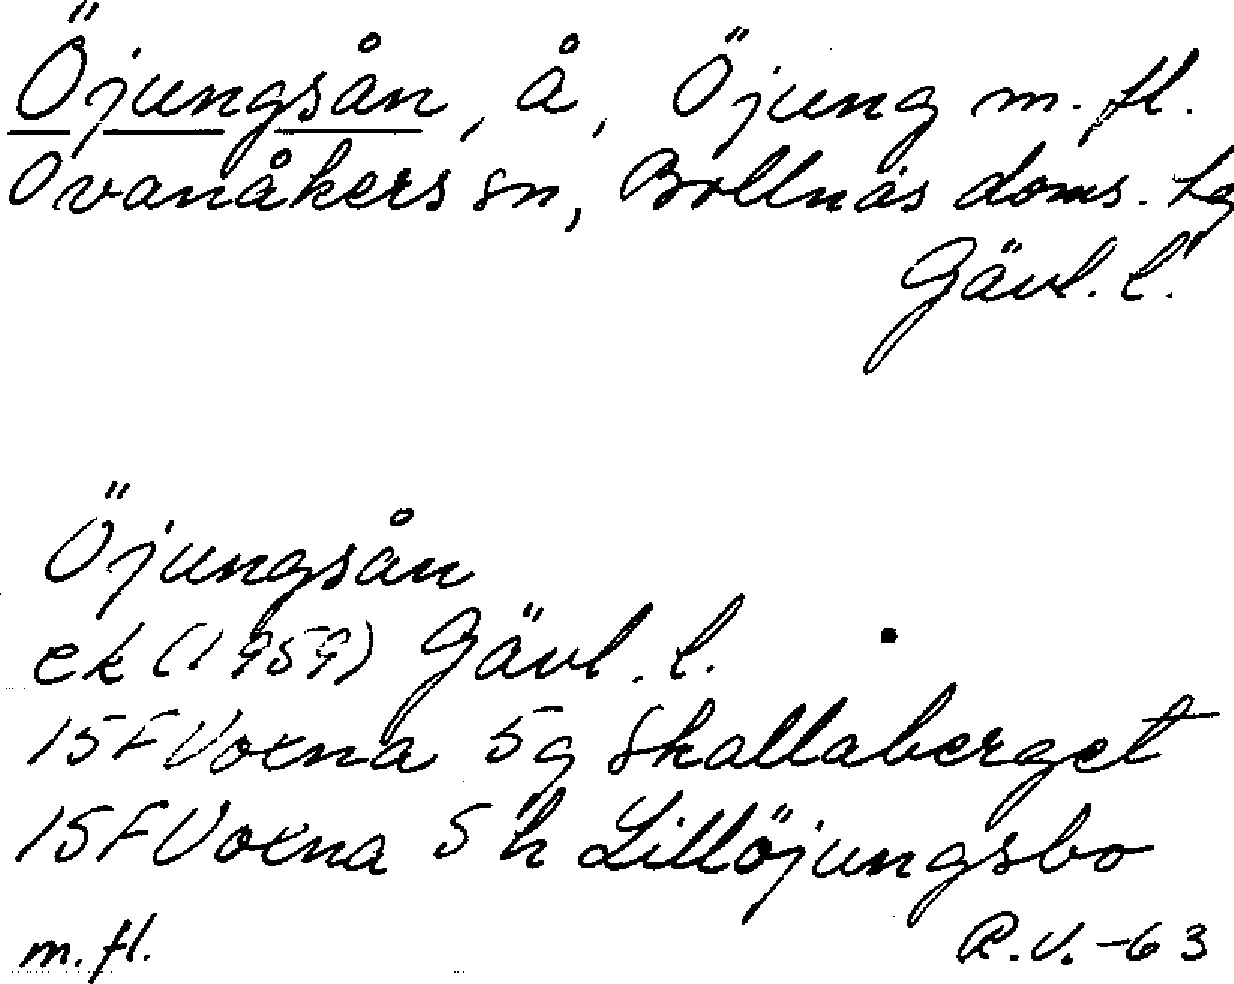 Öjungsån, å, Öjung m. fl.
Ovanåkers sn, Bollnäs doms. tg
Gävl. l.
Öjungsån
ek (1959) Gävl. l.
15F Voxna 5g Skallaberget
15F Voxna 5h Lillöjungsbo
m. fl.
R.V. -63